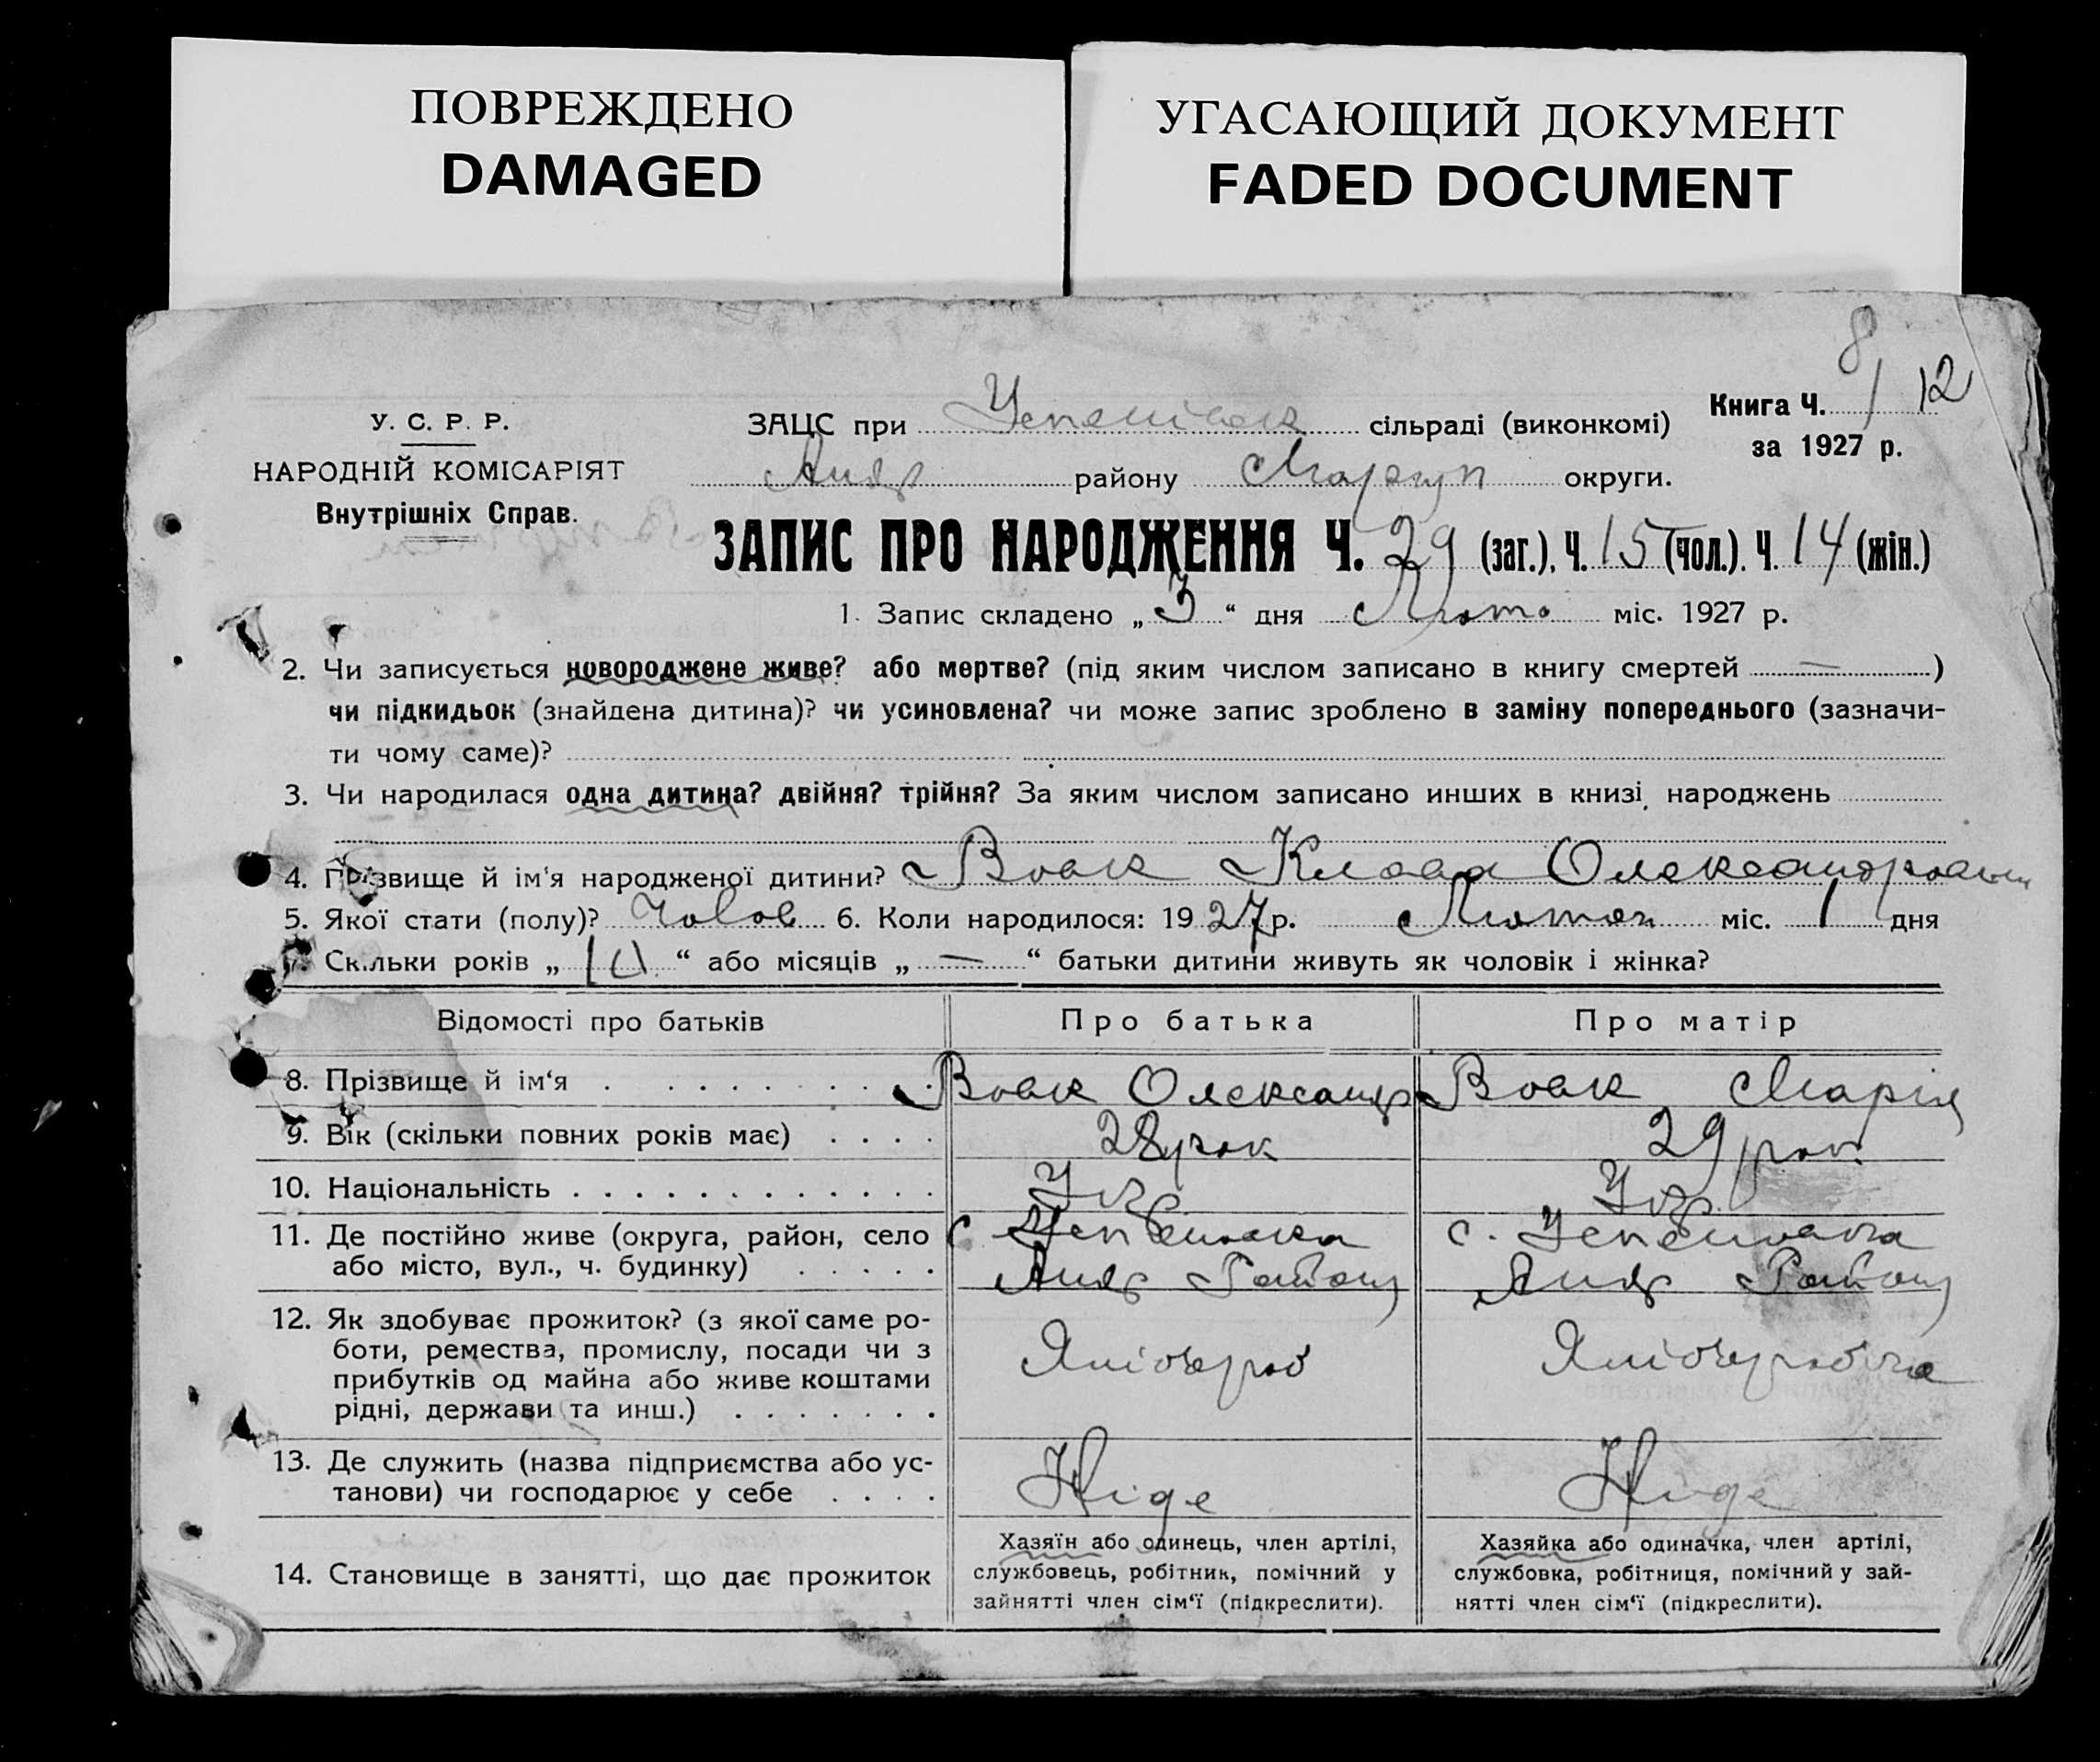 ПОВРЕЖДЕНО
DAMAGED
УГАСАЮЩИЙ ДОКУМЕНТ
FADED DOCUMENT
8/12
Книга Ч.
за 1927 р.
У. С. Р. Р.
НАРОДНІЙ КОМІСАРІЯТ
Внутрішніх Справ.
ЗАЦС при сільраді (виконкомі)
району Маріуп округи.
ЗАПИС ПРО НАРОДЖЕННЯ Ч. 29 (заг.). Ч. 15 (чол.). Ч. 14 (жін.)
1. Запис складено „ 3 “ дня Люто міс. 1927 р.
2. Чи записується новороджене живе? або мертве? (під яким числом записано в книгу смертей — )
чи підкидьок (знайдена дитина)? чи усиновлена? чи може запис зроблено в заміну попереднього (зазначи-
ти чому саме)?
3. Чи народилася одна дитина? двійня? трійня? За яким числом записано инших в книзі народжень
4. Прізвище й ім'я народженої дитини? Вовк Клава Олександровна
5. Якої стати (полу)? Чолов 6. Коли народилося: 1927 р. Лютон міс. 1 дня
7. Скільки років „ 10 “ або місяців „ — “ батьки дитини живуть як чоловік і жінка?
Відомості про батьків Про батька Про матір
8. Прізвище й ім‘я . . . . . . . . Вовк Олександр Вовк Марія
9. Вік (скільки повних років має) . . . . 28 рок 29 рок
10. Національність . . . . . . . . . . . . . Укр Укр
11. Де постійно живе (округа, район, село с. с.
або місто, вул., ч. будинку) . . . . . Район Район
12. Як здобуває прожиток? (з якої саме ро-
боти, ремества, промислу, посади чи з Хлібороб Хліборобка
прибутків од майна або живе коштами
рідні, держави та инш.) . . . . . . .
13. Де служить (назва підприємства або ус- Ніде Ніде
танови) чи господарює у себе . . . .
14. Становище в занятті, що дає прожиток
Хазяїн або одинець, член артілі,
службовець, робітник, помічний у
зайнятті член сім‘ї (підкреслити).
Хазяйка або одиначка, член артілі,
службовка, робітниця, помічний у зай-
нятті член сім‘ї (підкреслити).